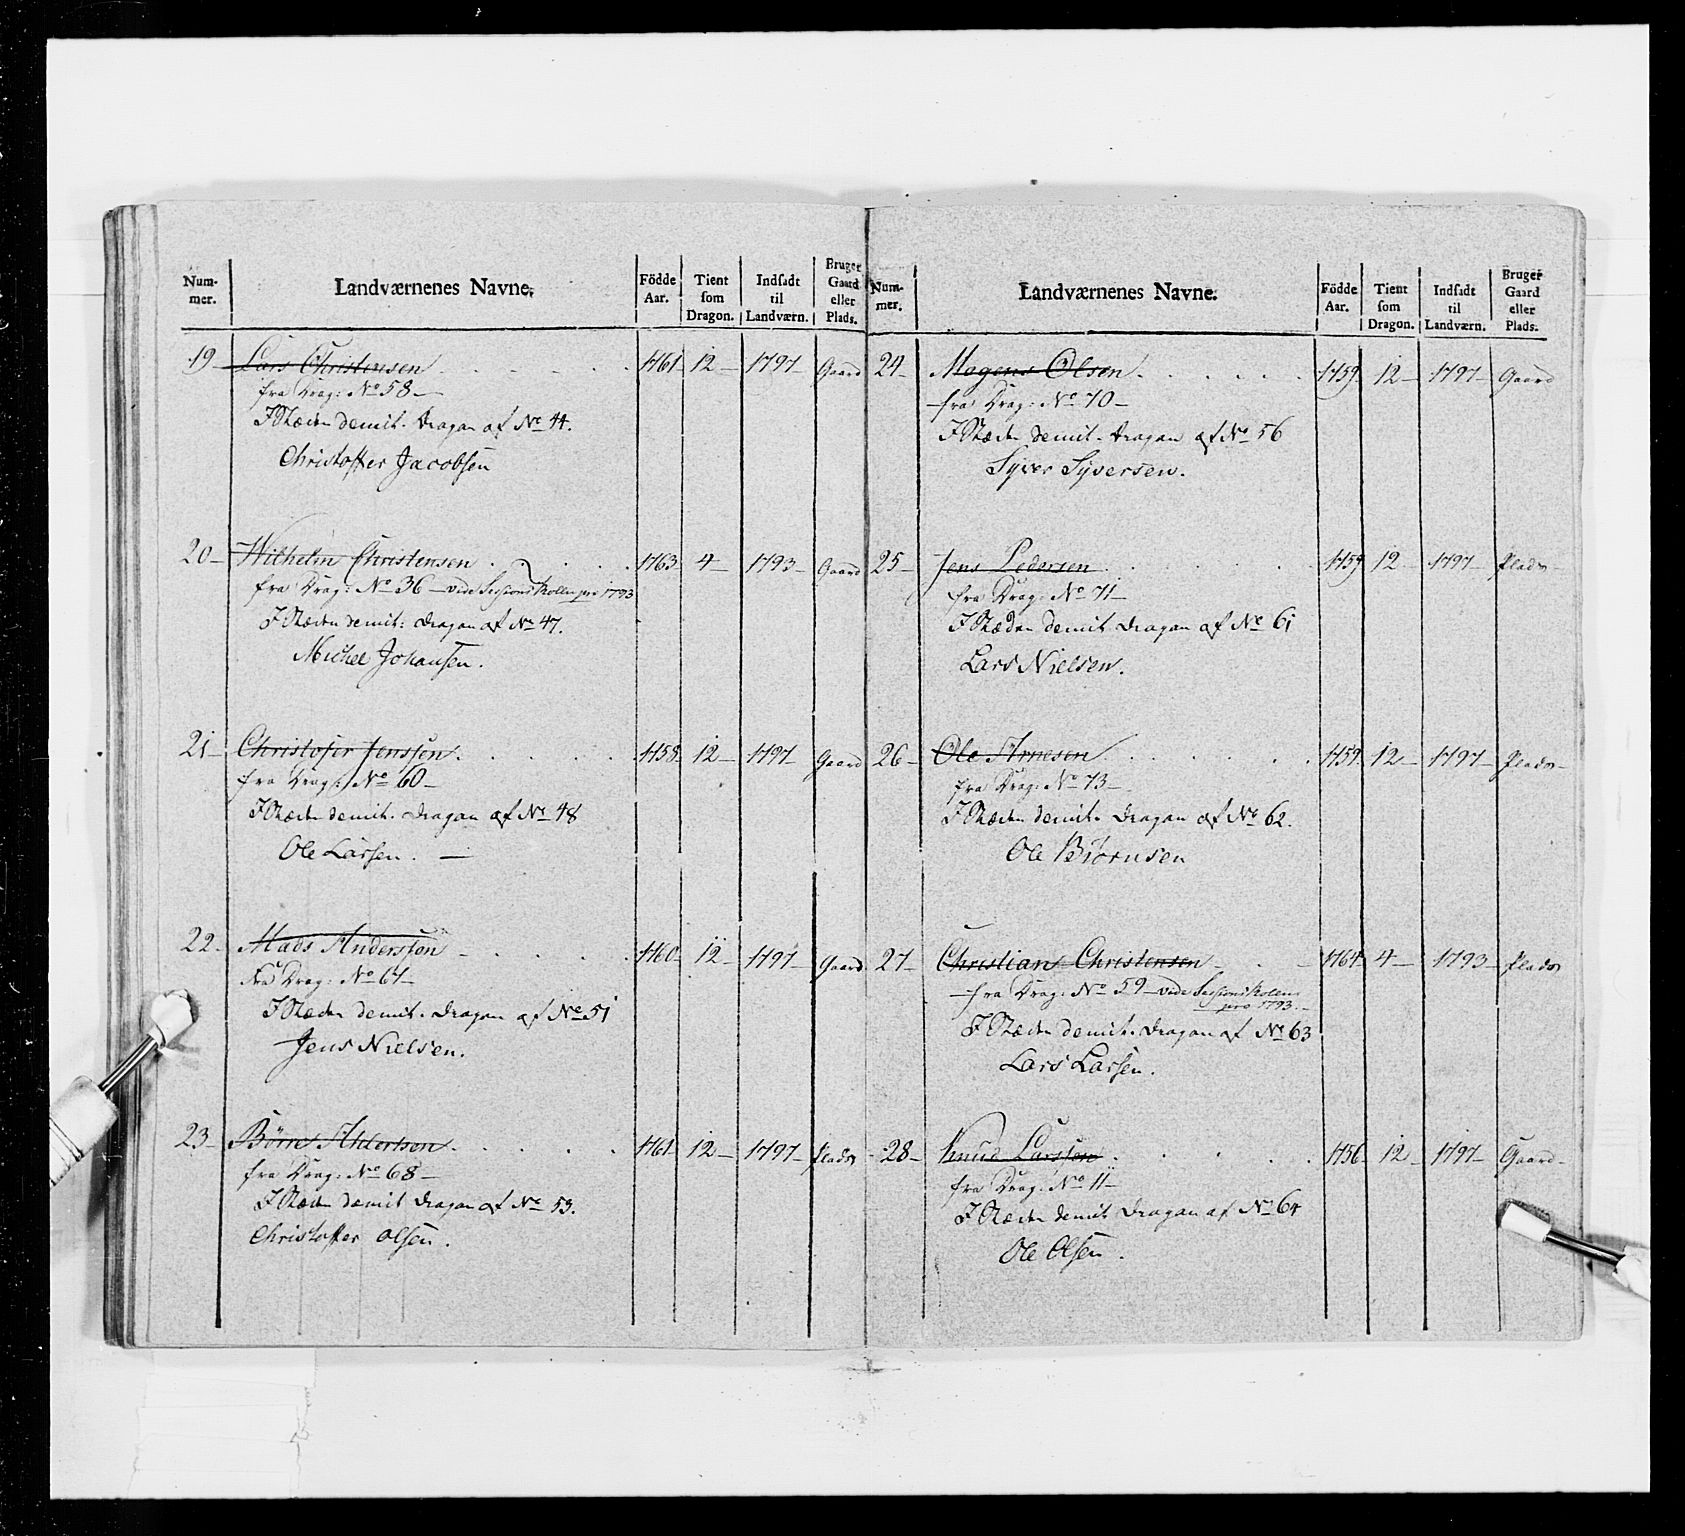 Num-
mer.
Landværnenes Navne.
Födde
Aar.
Tient
som
Dragon.
Indsadt
til
Landværn.
Bruger
Gaard
eller
Plads.
19 Lars Christensen 1761 12 1797 Gaard
fra Drag: No 58
I Stæden demit. Dragon af No 44.
Christoffer Jacobsen
20 Wilhelm Christensen 1763 4 1793 Gaard
fra Drag: No 36 vide Sessions Rollen pro 1793
I Stæden demit: Dragon af No 47.
Michel Johansen.
21 Christofer Jenssen 1758 12 1797 Gaard
fra Drag: No 60
I Stæden demit. Dragon af No 48
Ole Larsen.
22 Mads Anderssen 1760 12 1797 Gaard
Fra Drag: No 61
I Stæden demit. Dragon af No 51
Jens Nielsen.
23 Börre 1761 12 1797 Plads
fra Drag: No 68
I Stæden demit Dragon af No 53.
Christoffer Olsen.
Num-
mer.
Landværnenes Navne.
Födde
Aar.
Tient
som
Dragon.
Indsadt
til
Landværn.
Bruger
Gaard
eller
Plads.
24 Mogens Olsen 1759 12 1797 Gaard
fra Drag: No 70
I Stæden demit. Dragon af No 56
Syver Syversen.
25 Jens Pedersen 1759 12 1797 Plads
fra Drag: No 71
I Stæden demit Dragon af No 61
Lars Nielsen.
26 Ole Arnesen 1759 12 1797 Plads
fra Drag: No 73
I Stæden demit. Dragon af No 62.
Ole Biørnsen
27 Christian Christensen 1764 4 1793 Plads
fra Drag: No 59 vide Sessions Rollen
pro 1793.
I Stæden demit. Dragon af No 63
Lars Larsen.
28 Knud Larssen 1756 12 1797 Gaard
fra Drag: No 11
I Stæden demit Dragon af No 64
Ole Olsen.